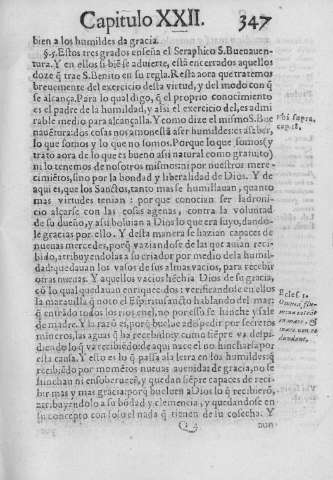 Capitulo XXII. 347
bien a los humildes da gracia.
§.5. Estos tres grados enseña el Seraphico S. Buenauen-
tura. Y en ellos si biē se aduierte, está encerrados aquellos
doze q̃ trae S. Benito en su regla. Resta aora que tratemos
breuemente del exercicio desta virtud, y del modo con q̃
se alcança. Para lo qual digo, q̃ el proprio conocimiento
es el padre de la humildad, y assi el exercicio del, es admi
rable medio para alcançalla. Y como dize el mismo S. Bue
nauētura: dos cosas nos amonestā a ser humildes: es a saber,
lo que somos y lo que no somos. Porque lo que somos (y
trato aora de lo que es bueno assi natural como gratuito)
ni lo tenemos de nosotros mismos ni por nostros mere-
cimiētos, sino por la bondad y liberalidad de Dios. Y de
aqui es, que los Sanctos, tanto mas se humillauan, quanto
mas virtudes tenian: por que conocian ser ladroni-
cio alçarse con las cosas agenas, contra la voluntad
de su dueño, y assi boluian a Dios lo que era suyo, dando-
le gracias por ello. Y desta manera se hazian capaces de
nueuas mercedes, porq̃ vaziandose de las que auian reci-
bido, atribuyendolas a su criador por medio dela humil-
dad: quedauan los vasos de sus almas vacios, para recibir
otras nueuas. Y aquellos vacios hēchia Dios de su gracia,
cō lo qual quedauan enriquecidos: verificandose en ellos
la marauilla q̃ noto el Espiritu sancto hablando del mar:
q̃ entrādo todos los rios enel, no por esso se hinche y sale
de madre. Y la razō es, porq̃ buelue a despedir por secretos
mineros, las aguas q̃ ha recebido: y como siēpre va despi-
diendo lo q̃ va recibiēdo: de aqui nace el no hincharse por
esta causa. Y esto es lo q̃ passa a la letra en los humildes: q̃
recibiēdo por momētos nueuas auenidas de gracia, no se
hinchan ni ensoberuecē, y quedan siēpre capaces de reci-
bir mas y mas gracia: porq̃ buelue a Dios lo q̃ recibierō,
atribuyendolo a su bōdad y clemencia, y quedandose en
su concepto con solo el nada q̃ tienen de su cosecha. Y
nun
Vbi supra,
cap. 18.
Eclef. 1.